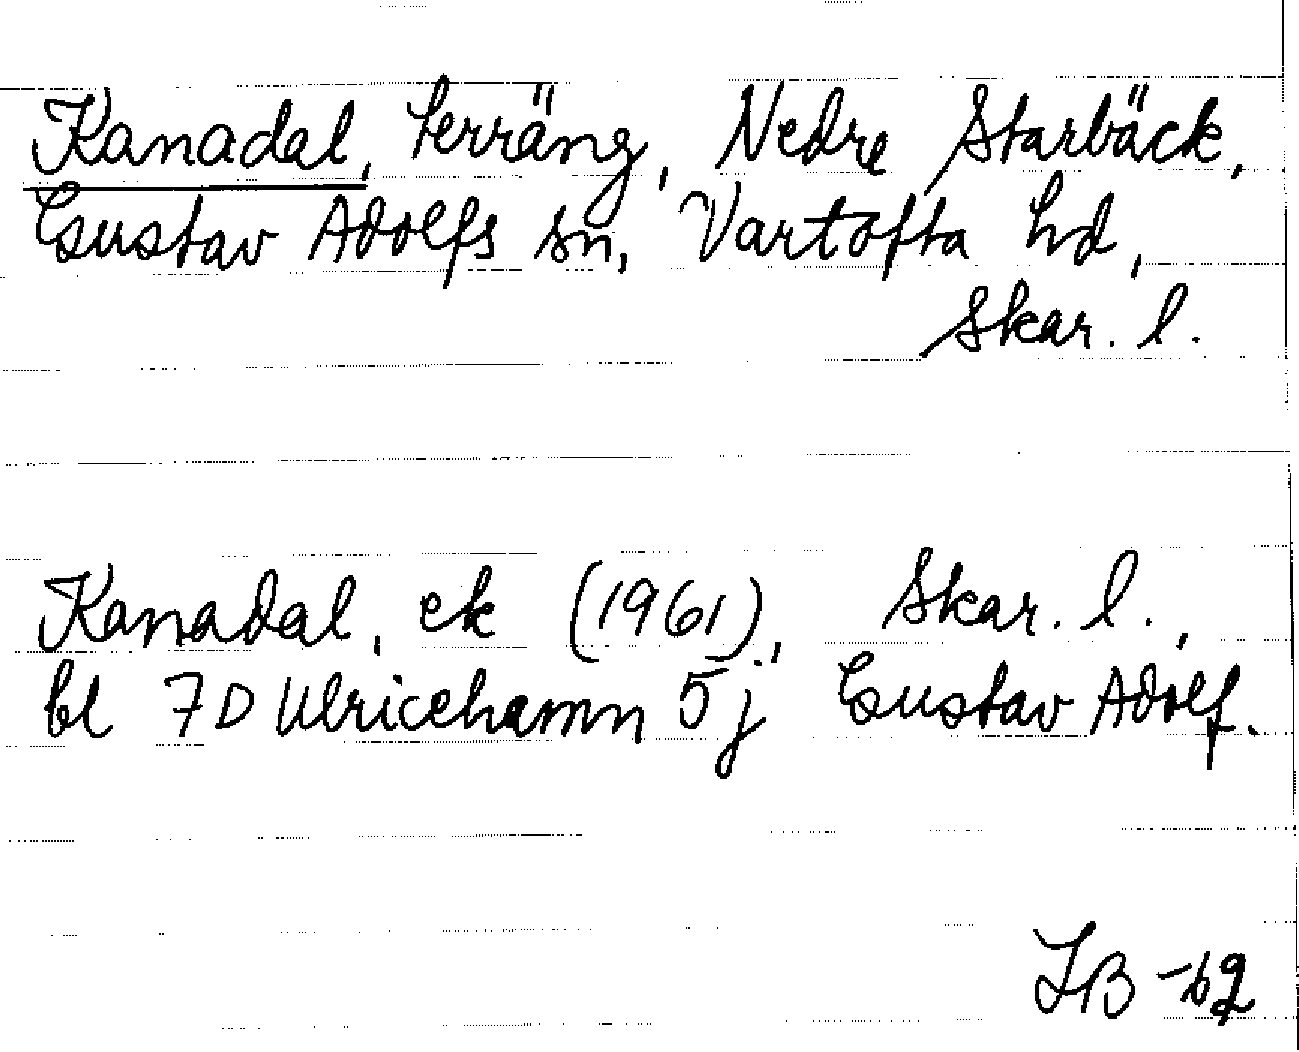 Kanadal, terräng, Nedre Starbäck,
Gustav Adolfs sn, Vartofta hd,
Skar. l.
Kanadal, ek (1961), Skar. l.,
bl 7D Ulricehamn 5j Gustav Adolf.